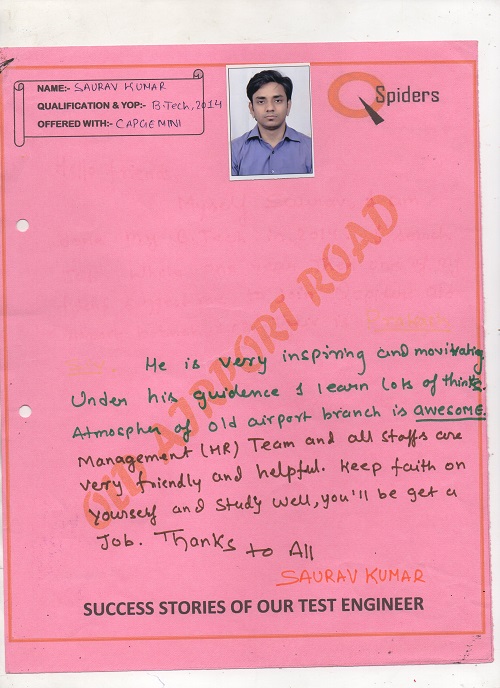 NAME:- SAURAV KUMAR
QUALIFICATION & YOP:- B.Tech, 2014
OFFERED WITH:- CAPGEMINI
Q Spiders
OLD AIRPORT ROAD
He is very inspiring and movitrating
Under his guidence I learn lots of things.
Atmospher of old airport branch is AWESOME.
Management (HR) Team and all staffs are
very friendly and helpful. Keep faith on
yourself and study well, you'll be get a
Job. Thanks to All
SAURAV KUMAR
SUCCESS STORIES OF OUR TEST ENGINEER